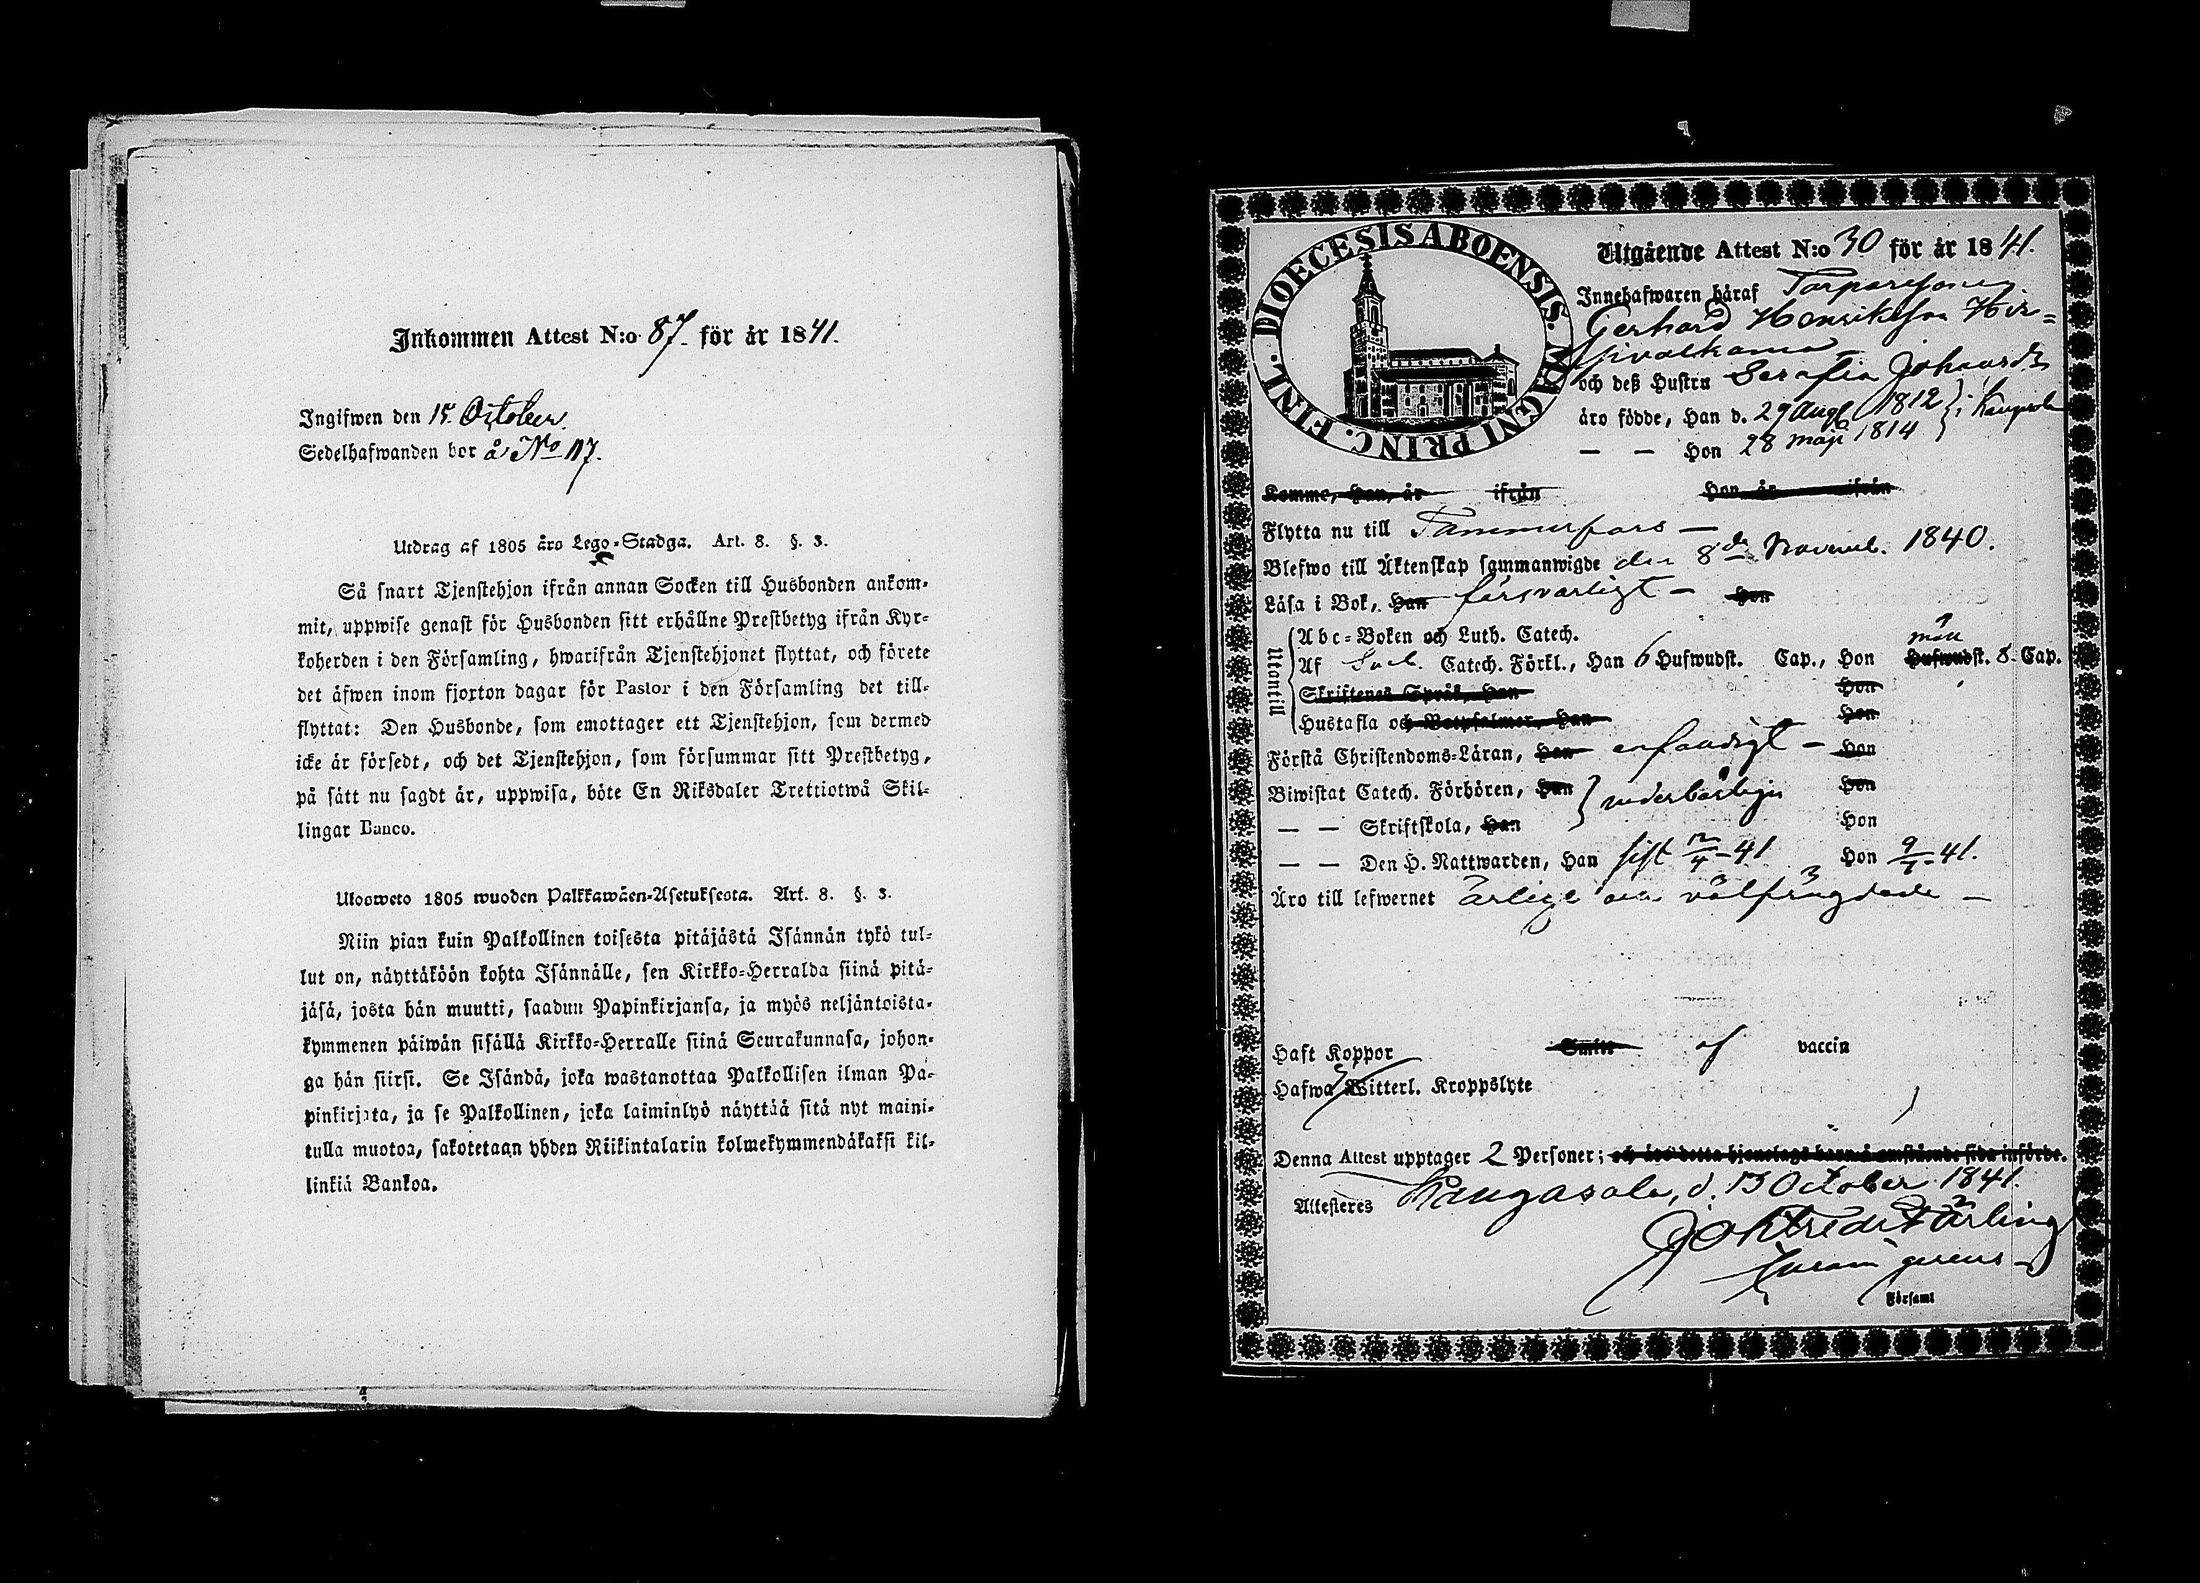 Inkommen Attest N:o 87. för år 1841.
Ingifwen den 15. October.
Sedelhafwanden bor å No 117.
Utdrag af 1805 års Lego-Stadga. Art. 8. §. 3.
Så snart Tjenstehjon ifrån annan Socken till Husbonden ankom-
mit, uppwise genast för Husbonden sitt erhållne Prestbetyg ifrån Kyr-
koherden i den Församling, hwarifrån Tjenstehjonet flyttat, och förete
det äfwen inom fjorton dagar för Pastor i den Församling det till-
flyttat: Den Husbonde, som emottager ett Tjenstehjon, som dermed
icke är försedt, och det Tjenstehjon, som försummar sitt Prestbetyg,
på sätt nu sagdt är, uppwisa, böte En Riksdaler Trettiotwå Skil-
lingar Banco.
Ulosweto 1805 wuoden Palkkawäen-Asetuksesta. Art. 8. §. 3.
Niin pian kuin Palkollinen toisesta pitäjästä Isännän tykö tul-
lut on, näyttäköön kohta Isännälle, sen Kirkko-Herralda siinä pitä-
jäsä, josta hän muutti, saadun Papinkirjansa, ja myös neljäntoista-
kymmenen päiwän sisällä Kirkko-Herralle siinä Seurakunnasa, johon-
ga hän siirsi. Se Isändä, joka wastanottaa Palkollisen ilman Pa-
pinkirjata, ja se Palkollinen, joka laiminlyö näyttää sitä nyt maini-
tulla muotoa, sakotetaan yhden Riikintalarin kolmekymmendäkaksi kil-
linkiä Bankoa.
DIOECESIS ABOENSIS. MAGNI PRINC. FINL.
Utgående Attest N:o 30 för år 1841.
Innehafwaren häraf Torparesonen
Gerhard Henriksson Hir-
sivalkama
och deß Hustru Serafia Johansdr
äro födde, Han d. 29 Aug 1812 } i Kangasala
— — Hon 28 maji 1814
Komne, Han, år ifrån Hon år ifrån
Flytta nu till Tammerfors —
Blefwo till Äktenskap sammanwigde den 8de Novemb. 1840.
Läsa i Bok, Han försvarligt — Hon
Utontill
Abc-Boken och Luth. Catech.
Af Catech. Förkl., Han 6 Hufwudst. Cap., Hon Hufwudst. 8. Cap.
Skriftenes Språk, Han Hon
Hustafla och Botpsalmer, Han Hon
Förstå Christendoms-Läran, Han enfaldigt — Hon
Biwistat Catech. Förhören, Han } vederbörligen Hon
— — Skriftskola, Han Hon
— — Den H. Nattwarden, Han sist 12/4-41 Hon 9/7-41.
Äro till lefwernet ärlige och välfrägdade —
Haft Koppor Smitt af vaccin
Hafwa Witterl. Kroppslyte
Denna Attest upptager 2 Personer; och äro detta hjonelags barn å omstående sida införde.
Attesteres Kangasala, d. 13 October 1841.
gerens
Församl